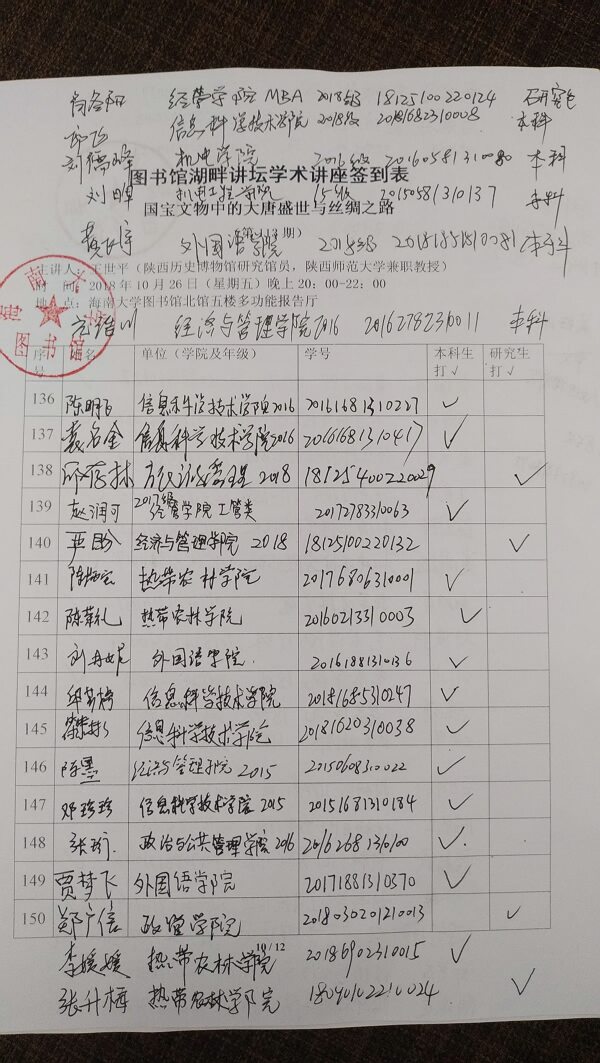 经管学院MBA 2018级 18125100220124 研究生
信息科学技术学院2018级 20181682310008 本科
机电学院 2016级 20160581310080 本科
图书馆湖畔讲坛学术讲座签到表
刘 15级 20150581310137 本科
国宝文物中的大唐盛世与丝绸之路
外国语学院 2018级 20181851810081 本科
主讲人：王世平（陕西历史博物馆研究馆员，陕西师范大学兼职教授）
时 间：2018年10月26日（星期五）晚上20：00-22：00
地 点：海南大学图书馆北馆五楼多功能报告厅
经济与管理学院2016 20162782310011 本科
序号 姓名 单位（学院及年级） 学号 本科生打√ 研究生打√
136 陈明 信息科学技术学院2016 20161681310227 √
137 袁名金 信息科学技术学院2016 20161681310417 √
138 2018 18125400220029 √
139 赵润可 2017级经管学院工管类 20172783310063 √
140 经济与管理学院 2018 18125100220132 √
141 陈 热带农村学院 20176806310001 √
142 陈荣礼 热带农林学院 20160213310003 √
143 刘冉妮 外国语学院. 20161881310136 √
144 邱 信息科学技术学院 20181685310247 √
145 信息科学技术学院 20181620310038 √
146 陈墨 经济与管理学院 2015 20150608310022 √
147 邓珍珍 信息科学技术学院 2015 20151681310184 √
148 张 政治与公共管理学院2016 20162681310100 √
149 贾梦飞 外国语学院 20171881310370 √
150 郑广信 政管学院 2018030201210013 √
李媛媛 热带农林学院 20186902310015 √
10/12
张升梅 热带农林学院 18090102210024 √
图书馆